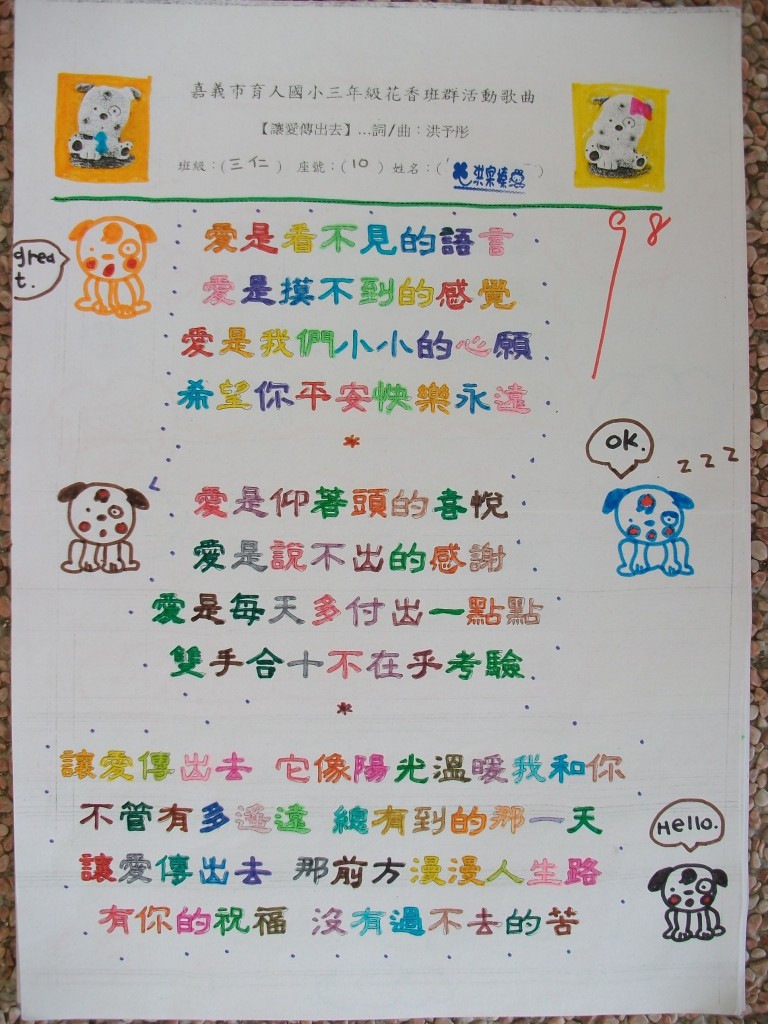 嘉義市育人國小三年級花香班群活動歌曲
【讓愛傳出去】…詞/曲：洪予彤
班級：(三仁) 座號：(10) 姓名：( )
98
great.
愛是看不見的語言
愛是摸不到的感覺
愛是我們小小的心願
希望你平安快樂永遠
*
OK.
z z z
愛是仰著頭的喜悅
愛是說不出的感謝
愛是每天多付出一點點
雙手合十不在乎考驗
*
讓愛傳出去 它像陽光溫暖我和你
不管有多遙遠 總有到的那一天
Hello.
讓愛傳出去 那前方漫漫人生路
有你的祝福 沒有過不去的苦